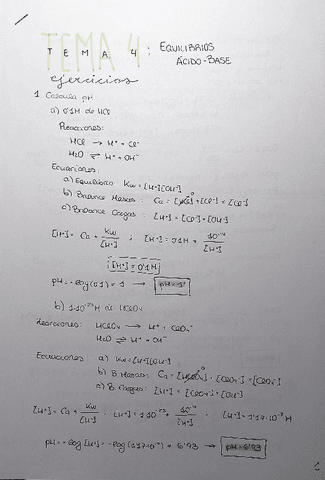 TEMA 4: EQUILIBRIOS
ÁCIDO-BASE
ejercicios
1 Calcula pH
a) 0'1M de HCl
Reacciones:
HCl → H⁺ + Cl⁻
H₂O ⇌ H⁺ + OH⁻
Ecuaciones:
a) Equilibrio Kw = [H⁺][OH⁻]
b) Balance Masas: Ca = [HCl]⁰ + [Cl⁻] = [Cl⁻]
c) Balance Cargas: [H⁺] = [Cl⁻] + [OH⁻]
[H⁺] = Ca + Kw/[H⁺] ; [H⁺] = 0'1M + 10⁻¹⁴/[H⁺]
[H⁺] = 0'1M
pH = -log(0'1) = 1 → pH = 1
b) 1·10⁻⁷ M de HClO₄
Reacciones: HClO₄ → H⁺ + ClO₄⁻
H₂O ⇌ H⁺ + OH⁻
Ecuaciones: a) Kw = [H⁺][OH⁻]
b) B. Masas: Ca = [HClO₄]⁰ + [ClO₄⁻] = [ClO₄⁻]
c) B. Cargas: [H⁺] = [ClO₄⁻] + [OH⁻]
[H⁺] = Ca + Kw/[H⁺] ; [H⁺] = 1·10⁻⁷ + 10⁻¹⁴/[H⁺] ; [H⁺] = 1'17·10⁻⁷ M
pH = -log [H⁺] = -log (1'17·10⁻⁷) = 6'93 → pH = 6'93
1